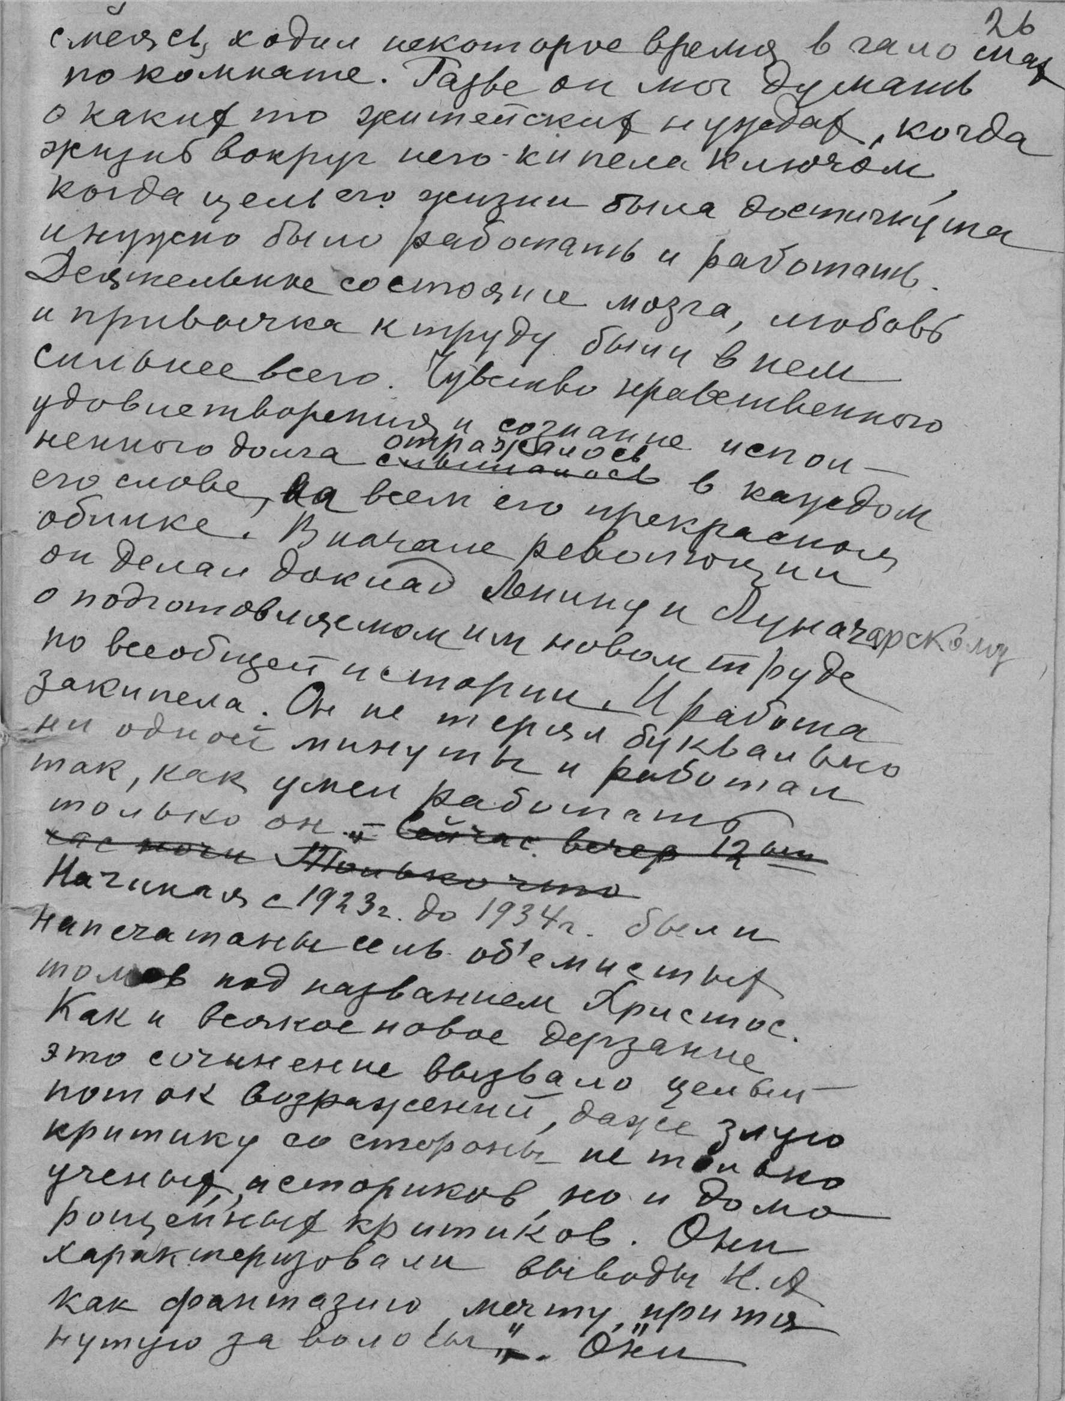 26
смеясь, ходил некоторое время в галошах
по комнате. Разве он мог думать
о каких то житейских нуждах, когда
жизнь вокруг него кипела ключом,
когда цель его жизни была достигнута
и нужно было работать и работать.
Деятельное состояние мозга, любовь
и привычка к труду были в нем
сильнее всего. Чувство нравственного
удовлетворения и сознание испол-
ненного долга отражалось слышалось в каждом
его слове, на всем его прекрасном
облике. В начале революции
он делал доклад Ленину и Луначарскому
о подготовляемом им новом труде
по всеобщей истории. И работа
закипела. Он не терял буквально
ни одной минуты и работал
так, как умел работать
только он. – Сейчас вечер 12ый
час ночи "Только что
Начиная с 1923г. до 1934г. были
напечатаны семь об'емистых
томов под названием Христос.
Как и всякое новое дерзание
это сочинение вызвало целый
поток возражений, даже злую
критику со стороны не только
ученых, историков, но и домо
рощенных критиков. Они
характеризовали выводы Н.А
как фантазию, мечту, притя
нутую за волосы". Они